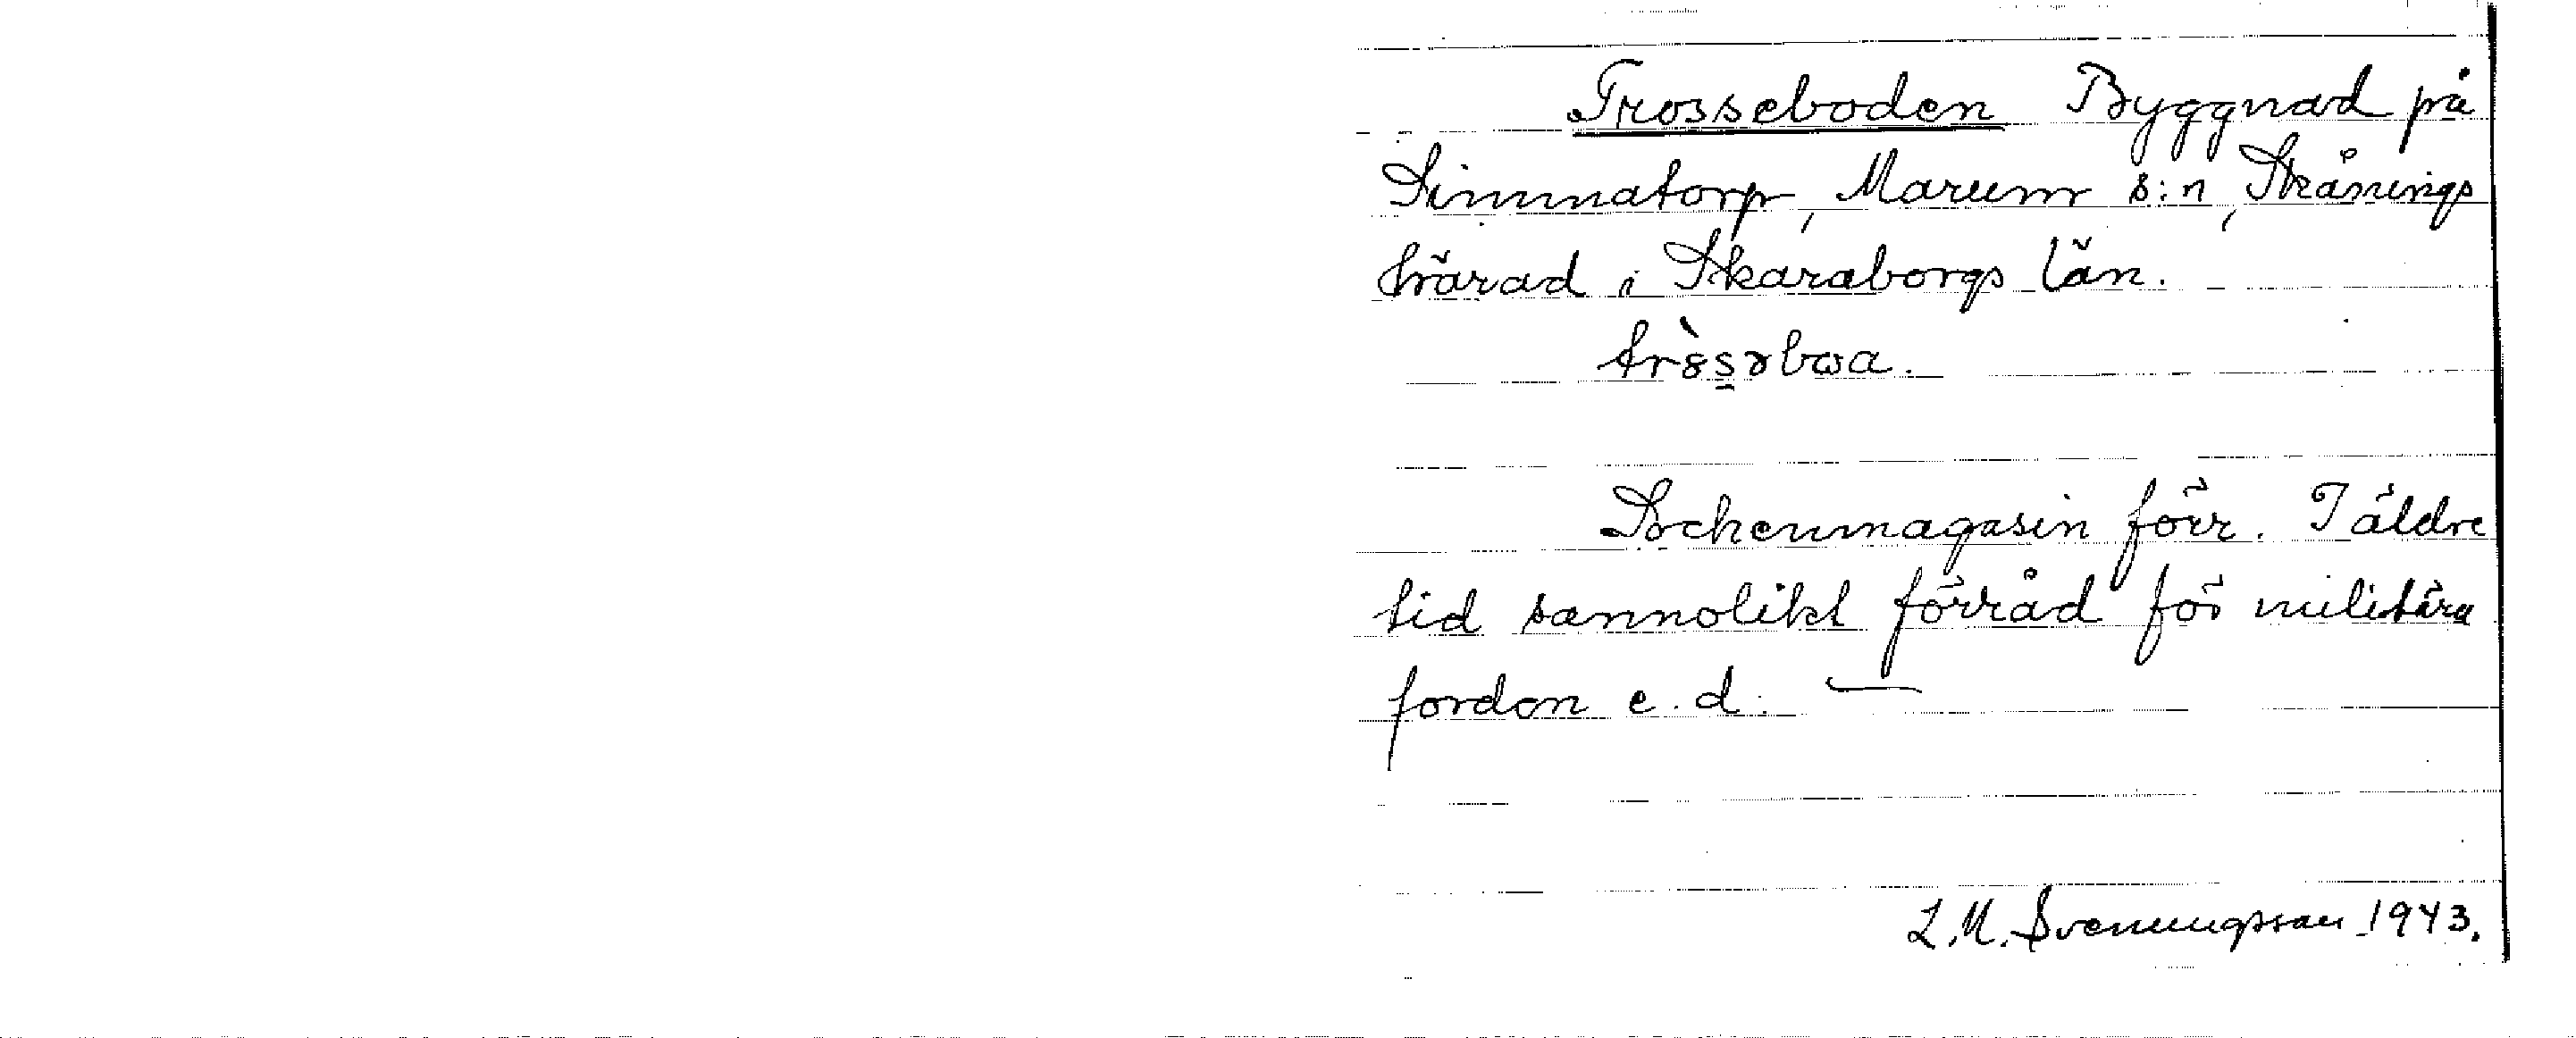 Trosseboden Byggnad på
Simmatorp, Marum s:n, Skånings
härad i Skaraborgs län.
Sockenmagasin förr. I äldre
tid sannolikt förråd för militära
fordon e.d. —
L.M. Svenungsson 1943.